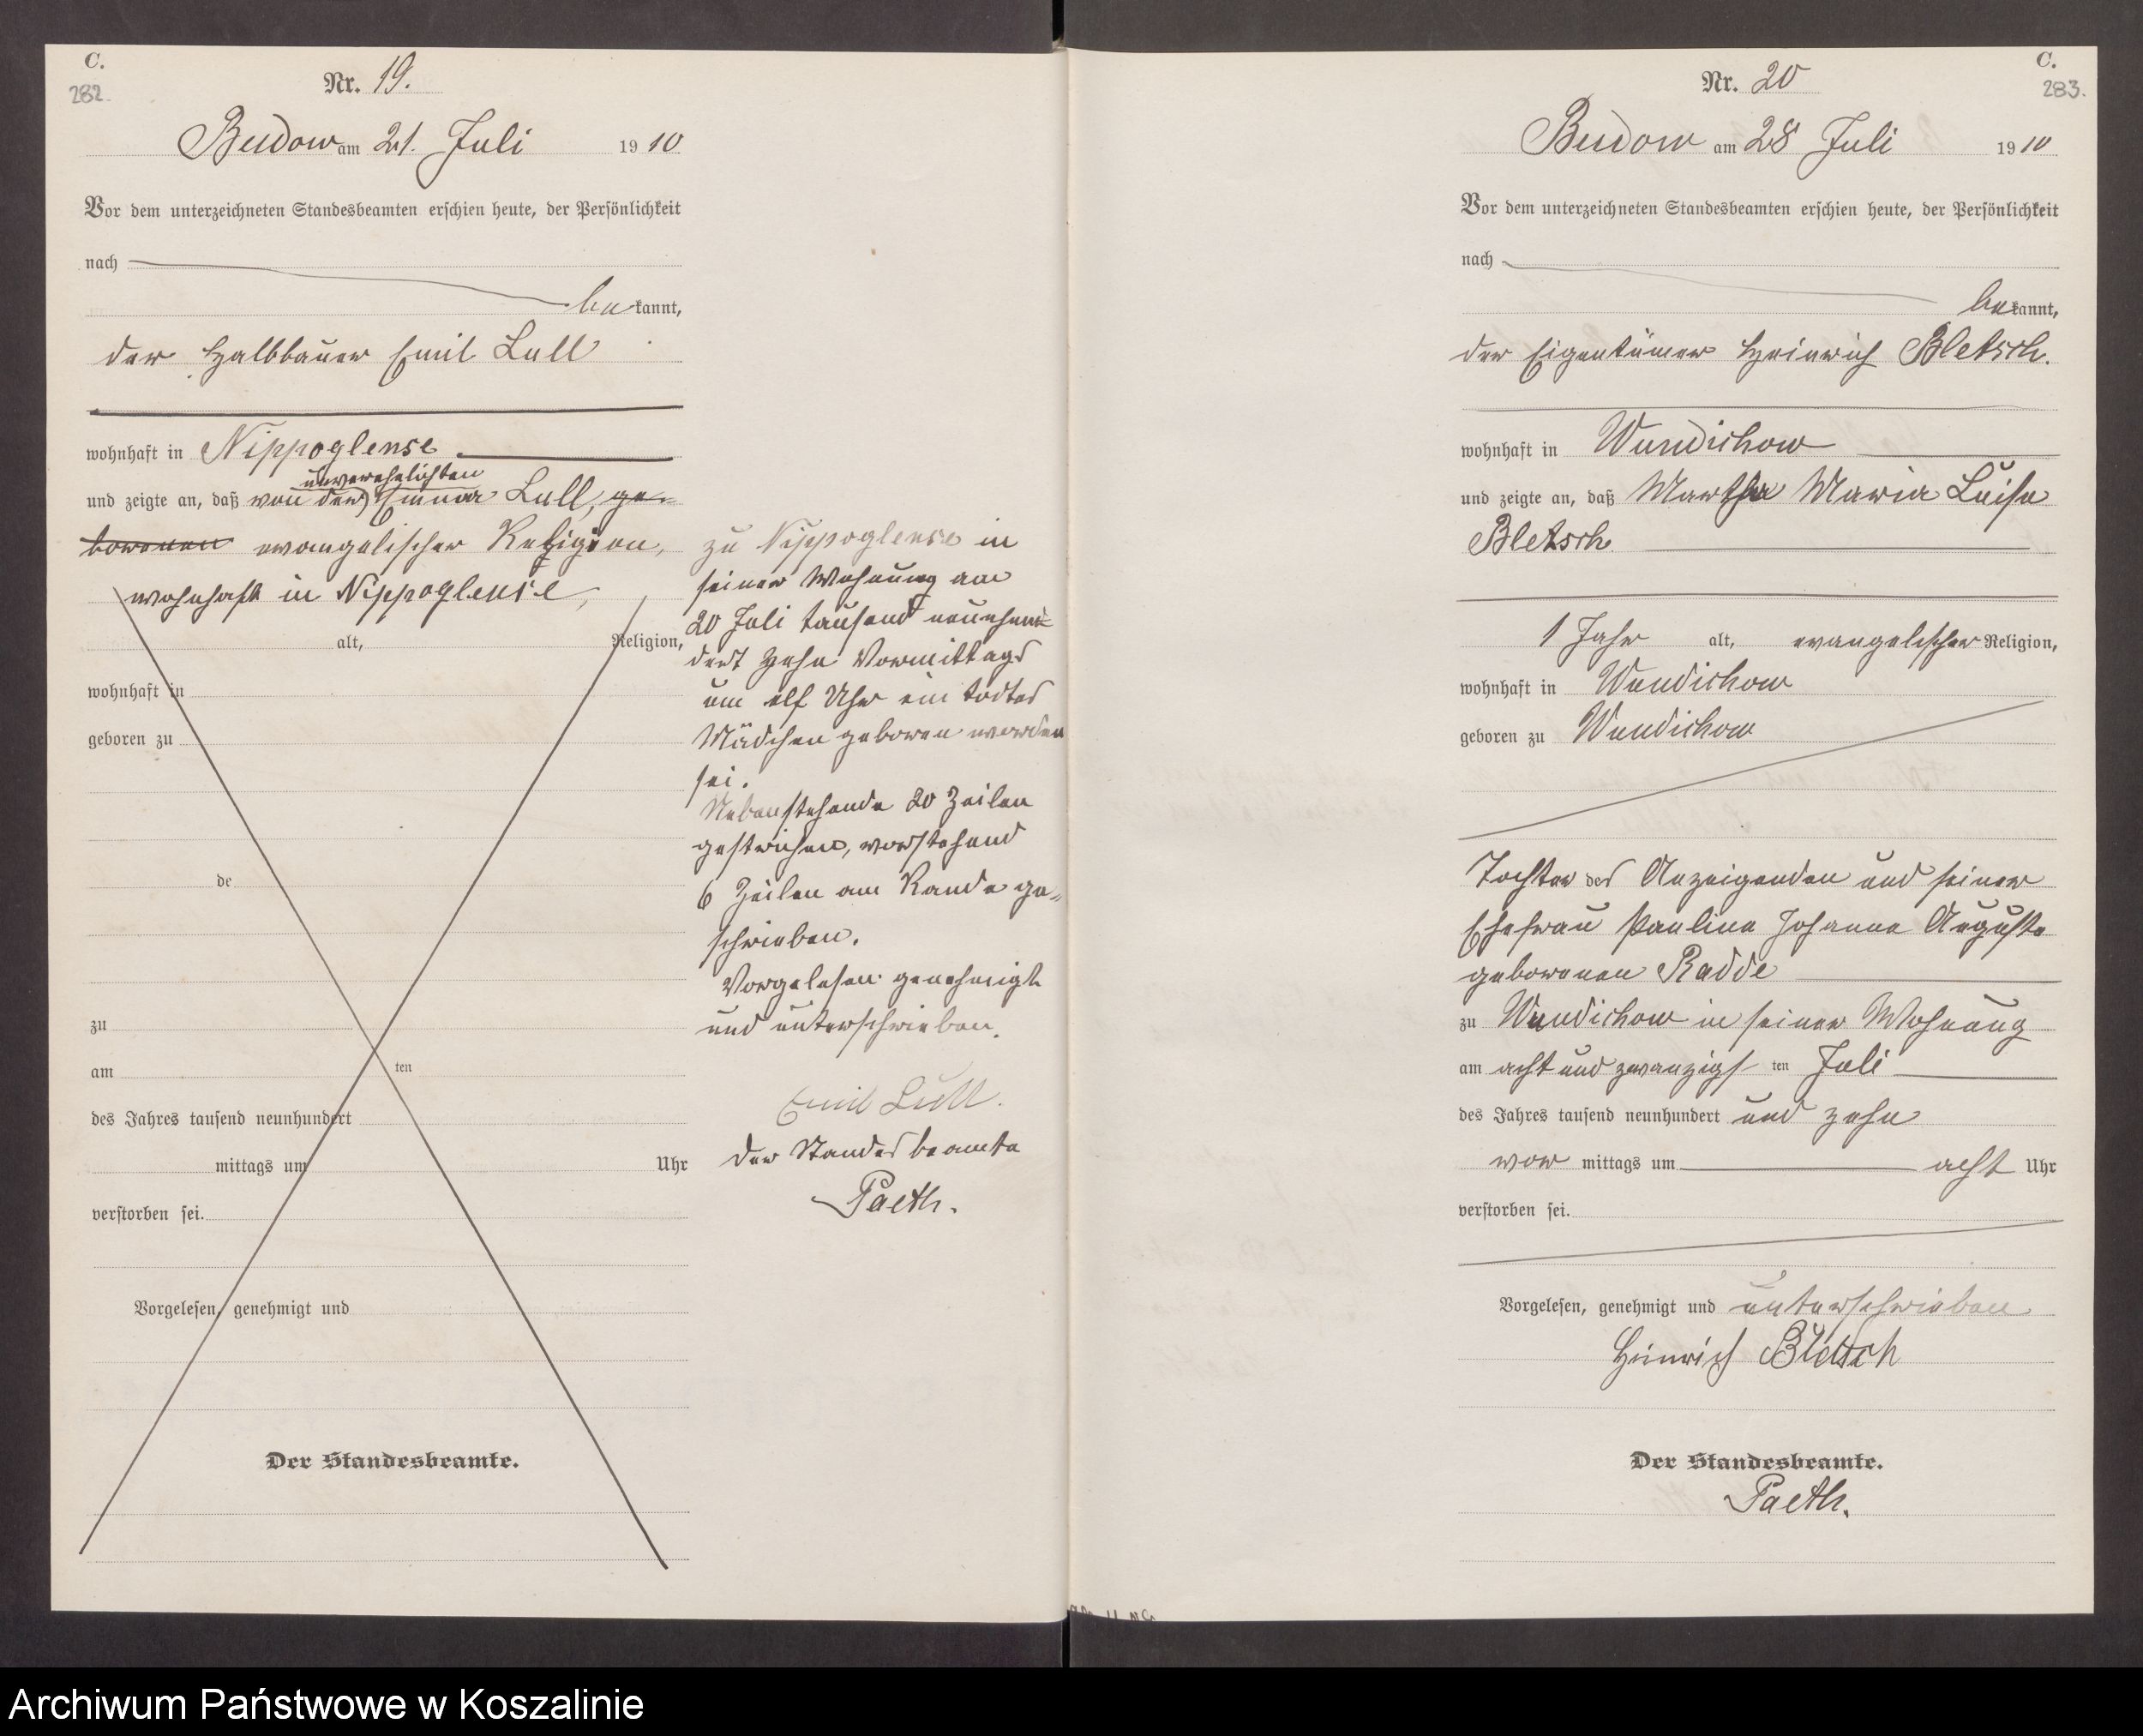 C.
282.
Nr. 19.
Budow am 21. Juli 1910
Vor dem unterzeichneten Standesbeamten erschien heute, der Persönlichkeit
nach
bekannt,
der Halbbauer Emil Lull
wohnhaft in Nippoglense
unverehelichten
und zeigte an, daß von der Emma Lull, ge-
borenen evangelischer Religion,
wohnhaft in Nippoglense,
alt, Religion,
wohnhaft in
geboren zu
de
zu
am ten
des Jahres tausend neunhundert
mittags um Uhr
verstorben sei.
Vorgelesen, genehmigt und
Der Standesbeamte.
zu Nippoglense in
seiner Wohnung am
20 Juli tausend neunhun-
dert zehn Vormittags
um elf Uhr ein todtes
Mädchen geboren worden
sei.
Nebenstehende 20 Zeilen
gestrichen, vorstehend
6 Zeilen am Rande ge-
schrieben.
Vorgelesen genehmigt
und unterschrieben.
Emil Lull.
Der Standesbeamte
Paeth.
C.
283.
Nr. 20
Budow am 28 Juli 1910
Vor dem unterzeichneten Standesbeamten erschien heute, der Persönlichkeit
nach
bekannt,
der Eigentümer Heinrich Bletsch.
wohnhaft in Wundichow
und zeigte an, daß Martha Maria Luise
Bletsch
1 Jahr alt, evangelischer Religion,
wohnhaft in Wundichow
geboren zu Wundichow
Tochter des Anzeigenden und seiner
Ehefrau Pauline Johanna Auguste
geborenen Radde
zu Wundichow in seiner Wohnung
am acht und zwanzigsten Juli
des Jahres tausend neunhundert und zehn
vor mittags um acht Uhr
verstorben sei.
Vorgelesen, genehmigt und unterschrieben
Heinrich Bletsch
Der Standesbeamte.
Paeth.
Archiwum Państwowe w Koszalinie